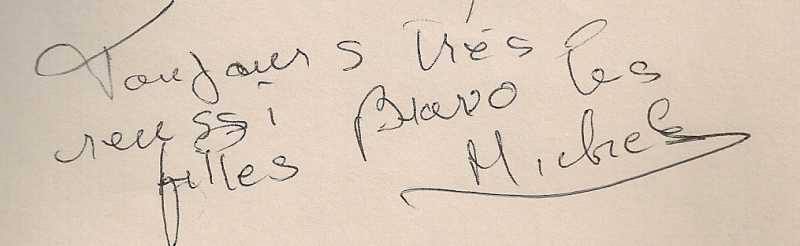 Toujours très
reussi Bravo les
filles Michele